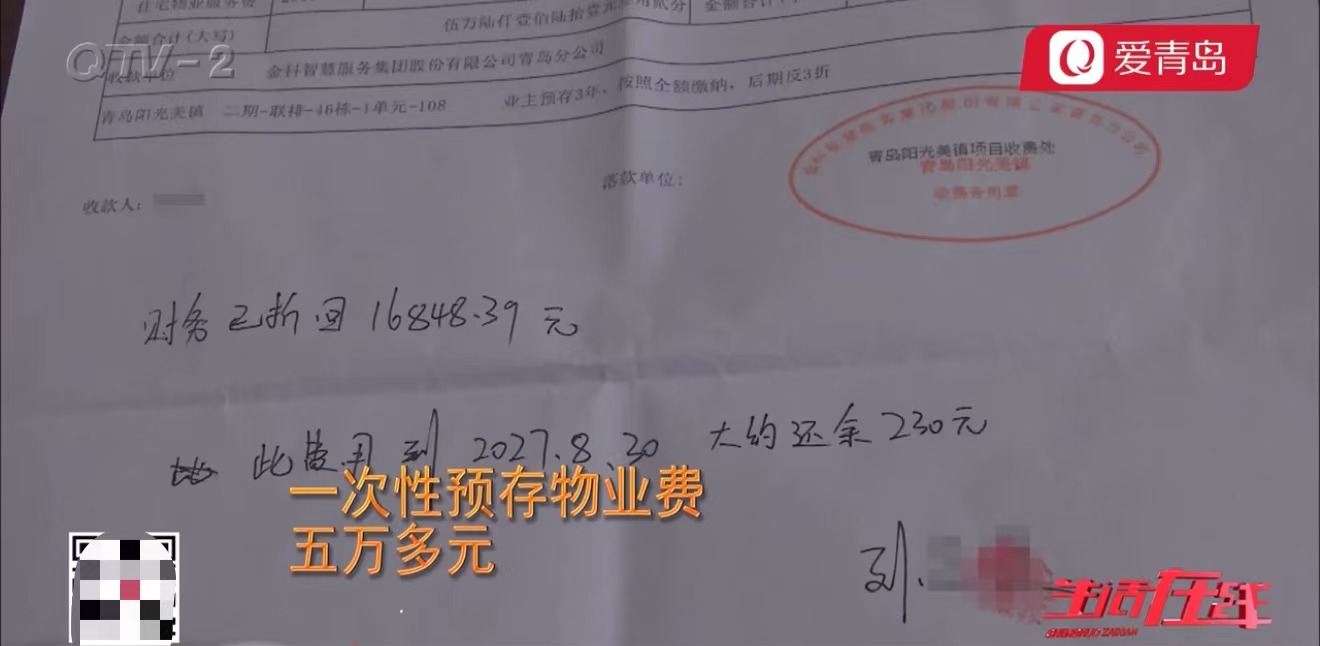 住宅物业服务费
金额合计(大写) 伍万陆仟壹佰陆拾壹元 角贰分 金额合计
收款单位 金科智慧服务集团股份有限公司青岛分公司
青岛阳光美镇 二期-联排-46栋-1单元-108 业主预存3年,按照全额缴纳,后期反3折
QTV-2
爱青岛
收款人:
落款单位:
青岛阳光美镇项目收费处
青岛阳光美镇
收费专用章
财务已折回16848.39元
此费用到2027.8.30 大约还余230元
一次性预存物业费
五万多元
刘.
生活在线
SHENGHUO ZAIXIAN